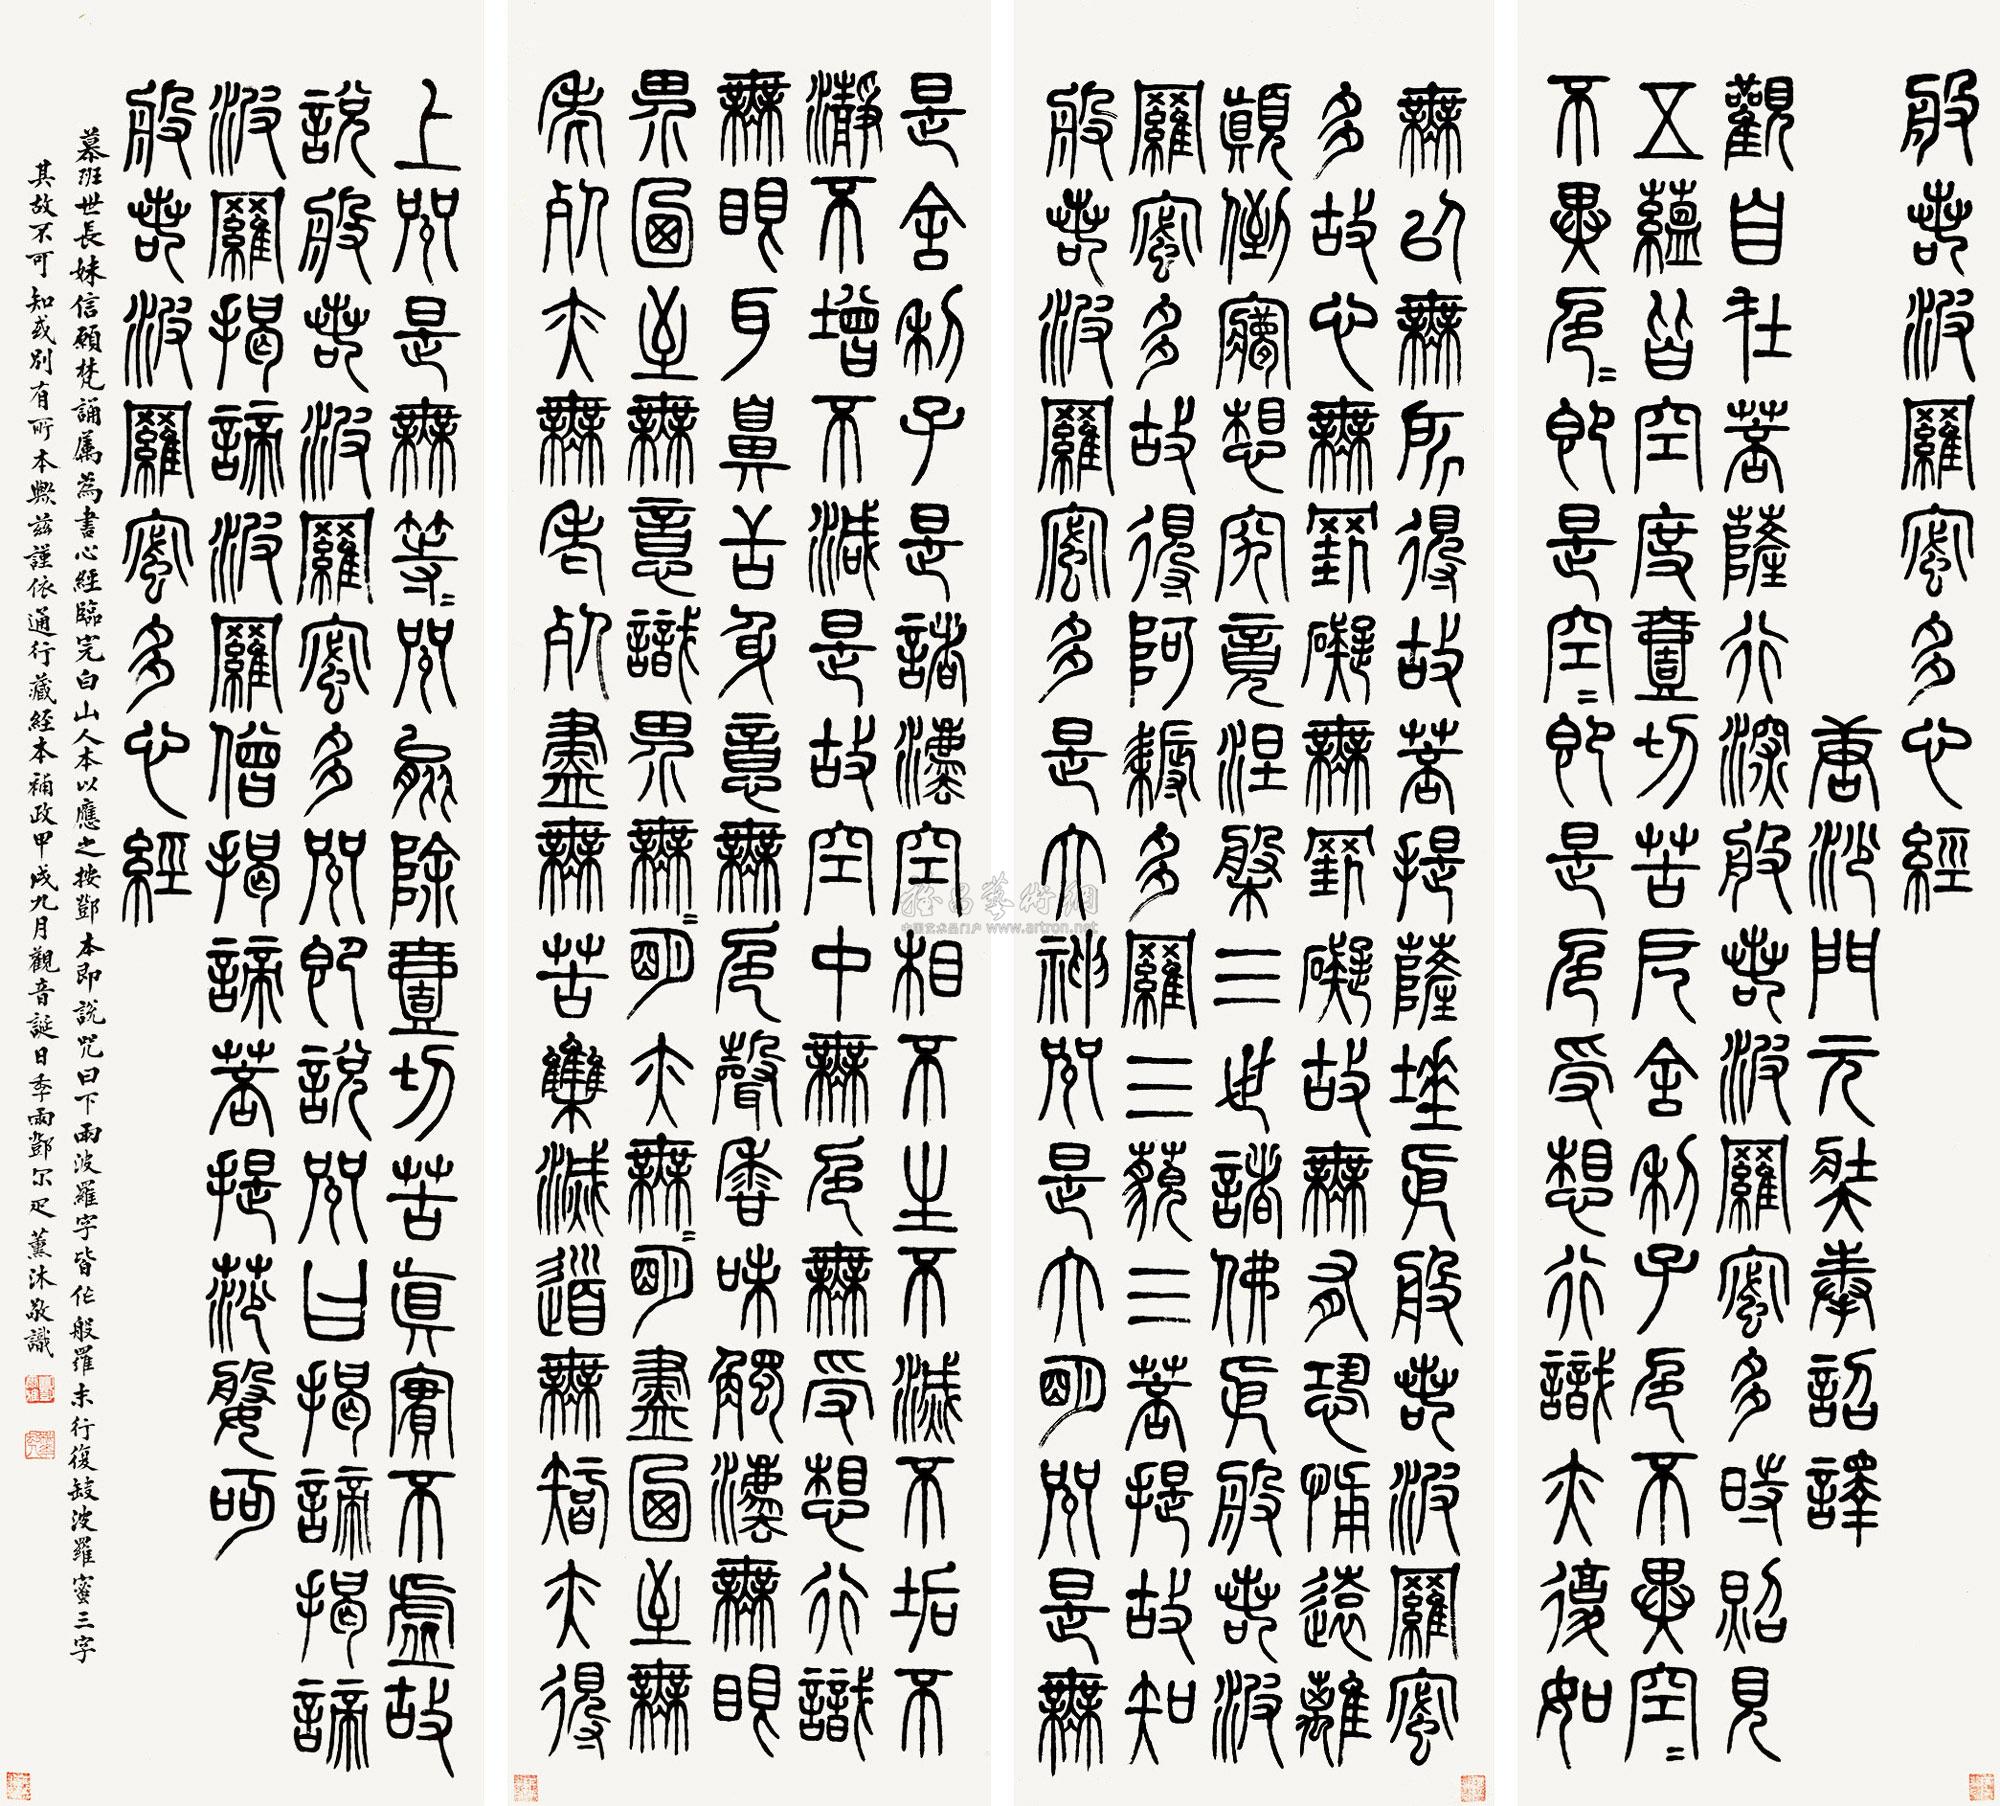 般若波羅密多心經
唐沙門元奘奉詔譯
觀自在菩薩行深般若波羅密多時照見
五蘊皆空度壹切苦厄舍利子色不異空〻
不異色〻即是空〻即是色受想行識亦復如
是舍利子是諸法空相不生不滅不垢不
瀞不增不減是故空中無色無受想行識
無眼耳鼻舌身意無色聲香味觸法無眼
界乃至無意識界無〻明亦無〻明盡乃至無
老死亦無老死盡無苦集滅道無智亦得
無以無所得故菩提薩埵依般若波羅密
多故心無罣礙無罣礙故無有恐怖遠離
顛倒夢想究竟涅槃三世諸佛依般若波
羅密多故得阿耨多羅三藐三菩提故知
般若波羅密多是大神咒是大明咒是無
上咒是無等〻咒能除壹切苦真實不虛故
說般若波羅密多咒即說咒曰揭諦揭諦
波羅揭諦波羅僧揭諦菩提莎婆呵
般若波羅密多心經
慕班世長妹信願梵誦屬為書心經臨完白山人本以應之按鄧本即說咒曰下兩波羅字皆作般羅末行復缺波羅蜜三字
其故不可知或別有所本歟茲謹依通行藏經本補政甲戌九月觀音誕日季雨鄧尔疋薰沐敬識
雅昌藝術網
中国艺术品门户 www.artron.net